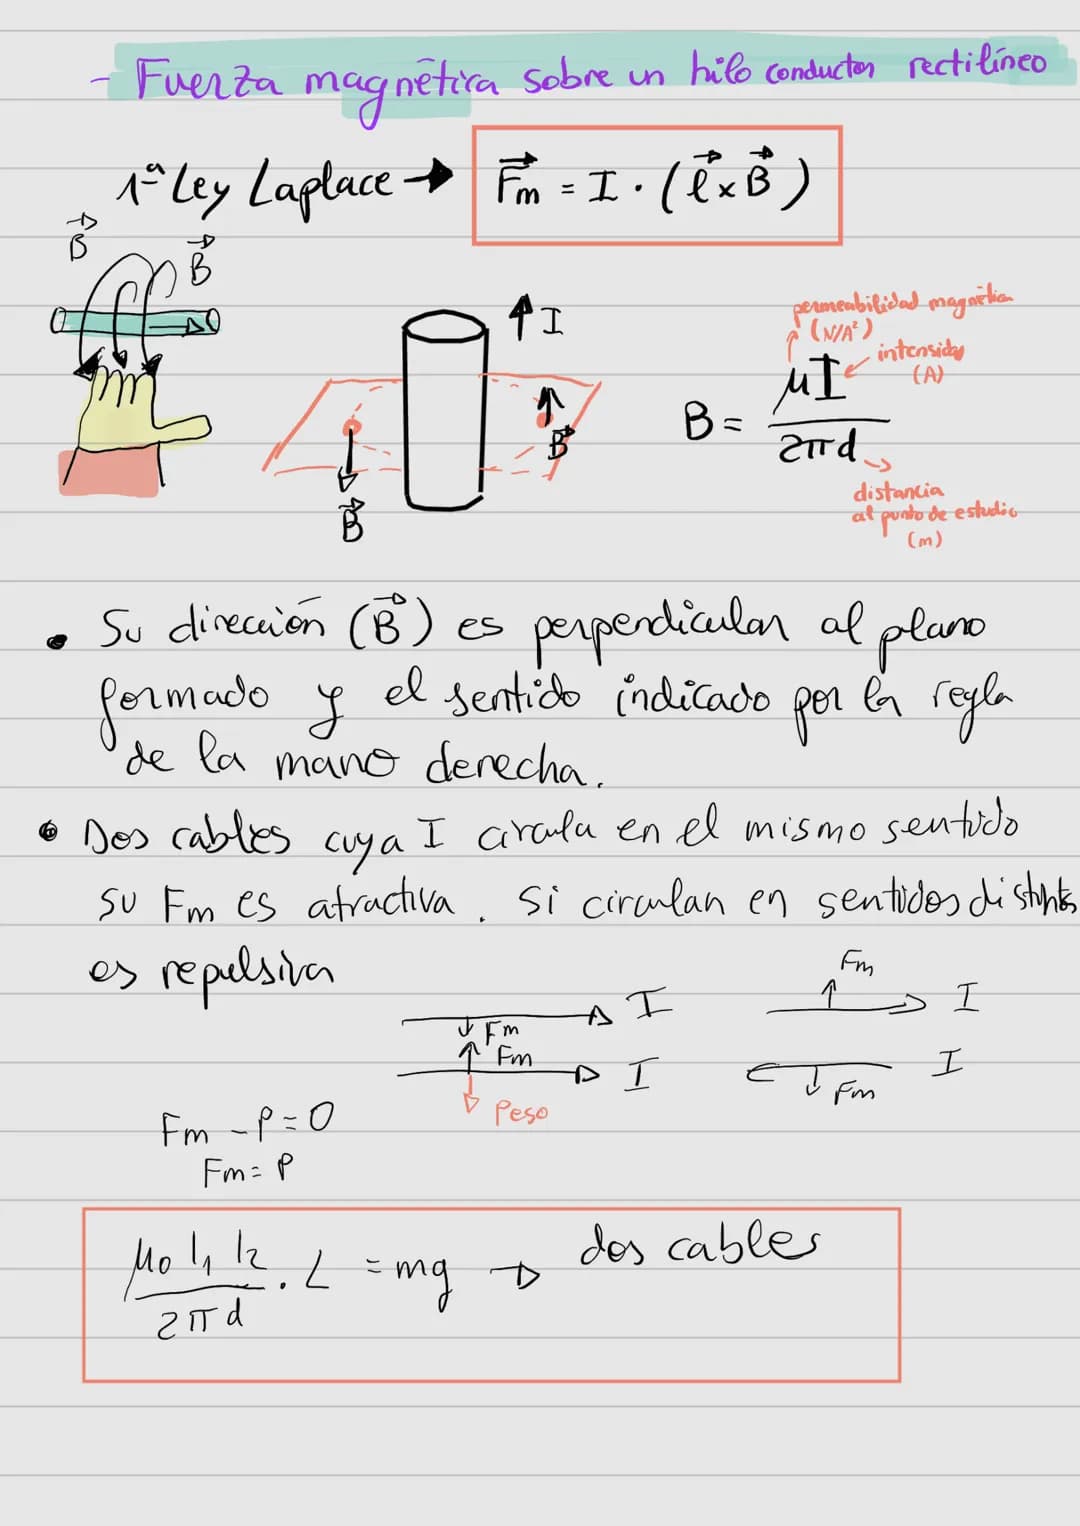 - Fuerza magnética sobre un hilo conductor rectilíneo
1ª Ley Laplace → F⃗m = I · (ℓ⃗ x B⃗)
B⃗
B⃗
I
B⃗
B⃗
permeabilidad magnética
(N/A²)
intensidad
(A)
B = μI / 2πd
distancia
al punto de estudio
(m)
• Su dirección (B⃗) es perpendicular al plano
formado y el sentido indicado por la regla
de la mano derecha.
• Dos cables cuya I circula en el mismo sentido
su Fm es atractiva. Si circulan en sentidos distintos
es repulsiva
Fm
I
I
Fm
Fm
I
I
Peso
Fm
Fm - P = 0
Fm = P
μ₀ I₁ I₂ / 2πd · L = mg → dos cables